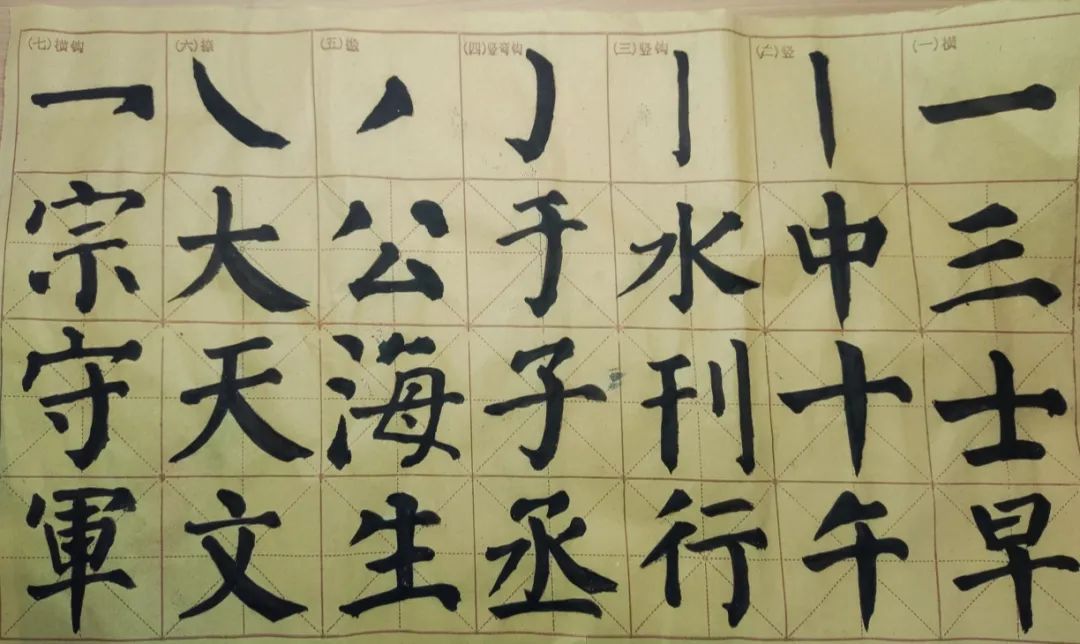 (一)横
一三士早
(二)竖
丨中十午
(三)竖钩
亅水刊行
(四)竖弯钩
㇁于子丞
(五)撇
丿公海生
(六)捺
㇏大天文
(七)横钩
乛宗守軍